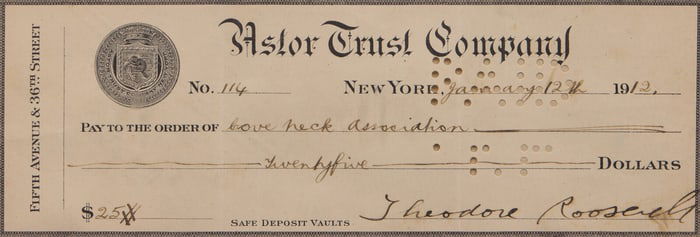 Astor Trust Company
No. 114 New York, January 12th 1912.
Pay to the order of Cove Neck Association
Twentyfive Dollars
$25
Safe Deposit Vaults
Theodore Roosevelt
Fifth Avenue & 36th Street